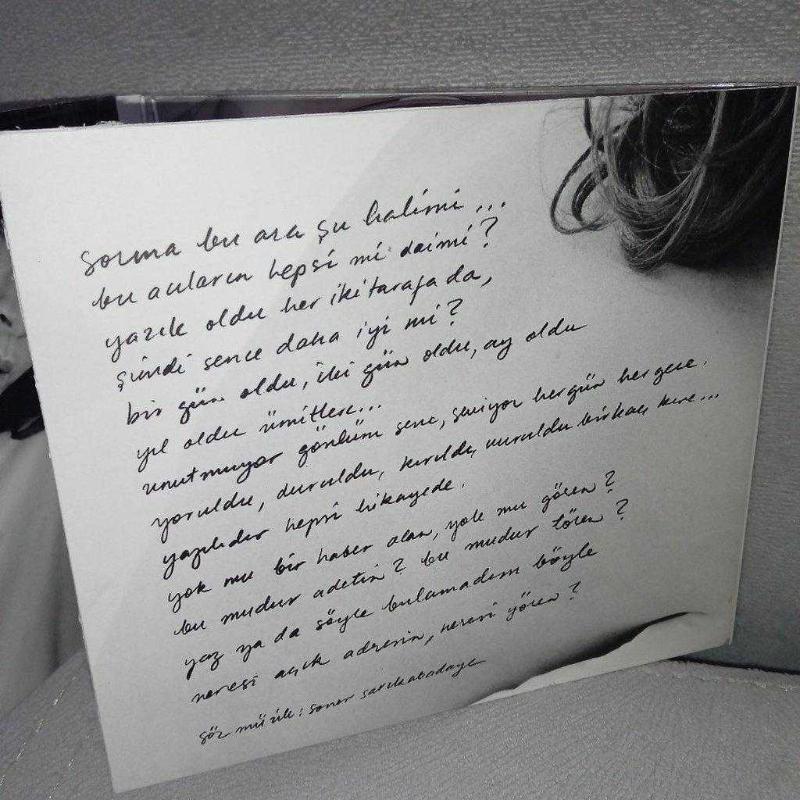 sorma bu ara şu halimi...
bu acıların hepsi mi daimi?
yazık oldu her iki tarafa da,
şimdi sence daha iyi mi?
bir gün oldu, iki gün oldu, ay oldu
yıl oldu ümitlere...
unutmuyor gönlüm seni, seviyor hergün her gece.
yoruldu, duruldu, kırıldı, vuruldu birkaç kere...
yazılıdır hepsi hikayede.
yok mu bir haber alan, yok mu gören?
bu mudur adetin? bu mudur tören?
yaz ya da söyle bulamadım böyle
neresi açık adresin, neresi yören?
söz müzik: soner sarıkabadayı